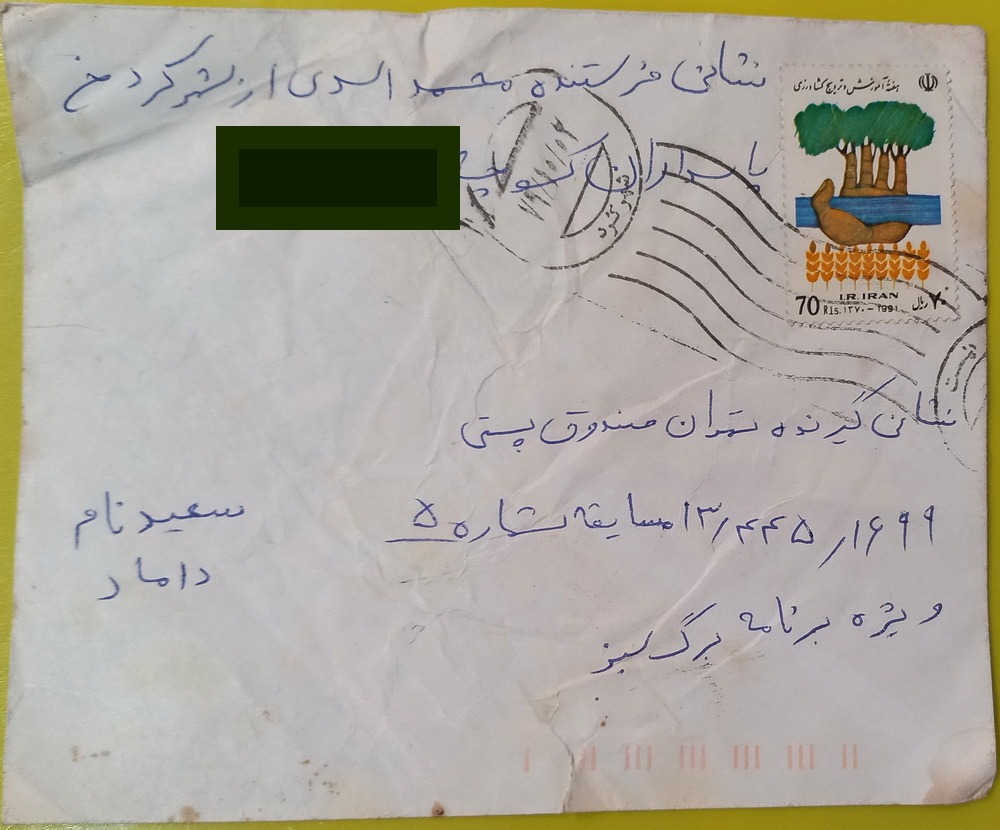 نشانی فرستنده محمد اسدی از شهرکرد خ
پاسداران کوچه
هفتهٔ آموزش و ترویج کشاورزی
70 Rls. ۱۳۷۰ - 1991
I.R. IRAN
۷۰ ریال
۷۹/۱۰/۰۴
شهرکرد
نشانی گیرنده تهران صندوق پستی
۱۶۹۹ / ۱۳/۴۴۵ مسابقه شماره ۵
ویژه برنامه برگ سبز
سعید نام
داماد